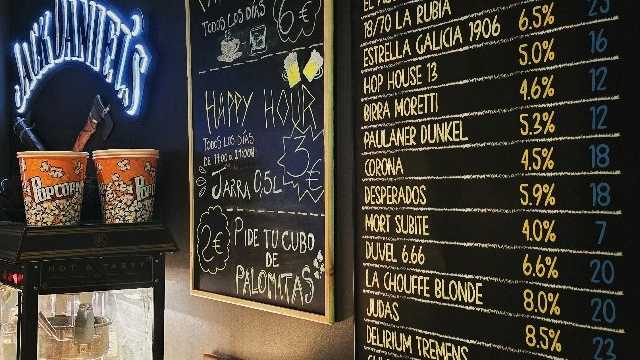 JACK DANIEL'S
POPCORN
HOT & TASTY
TODOS LOS DÍAS
6€
HAPPY HOUR
TODOS LOS DÍAS
3€
JARRA 0,5L
2€
PIDE TU CUBO
DE
PALOMITAS
18/70 LA RUBIA 6.5% 23
ESTRELLA GALICIA 1906 5.0% 16
HOP HOUSE 13 4.6% 12
BIRRA MORETTI 5.3% 12
PAULANER DUNKEL 4.5% 18
CORONA 5.9% 18
DESPERADOS 4.0% 7
MORT SUBITE 6.6% 20
DUVEL 6.66 8.0% 20
LA CHOUFFE BLONDE 8.5% 22
JUDAS
DELIRIUM TREMENS